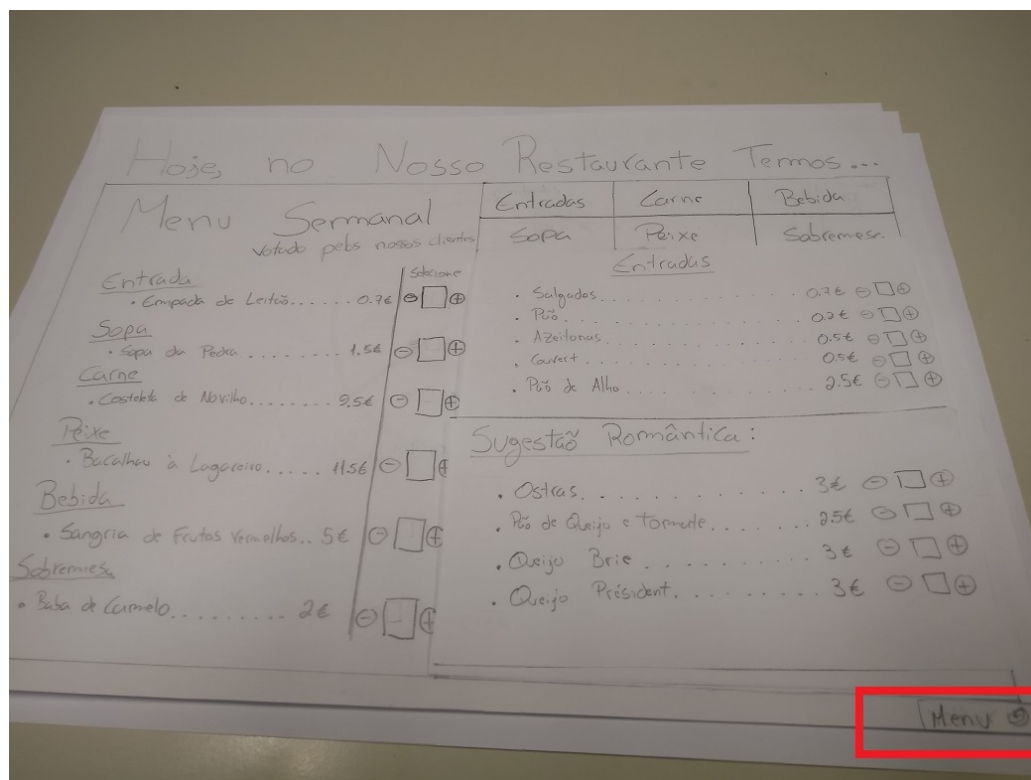 Hoje, no Nosso Restaurante Temos...
Menu Semanal
Votado pelos nossos clientes
Selecione
Entrada
• Empada de Leitão...... 0.7€
Sopa
• Sopa da Pedra ........ 1.5€
Carne
• Costeleta de Novilho........ 9.5€
Peixe
• Bacalhau à Lagareiro..... 11.5€
Bebida
• Sangria de Frutos Vermelhos.. 5€
Sobremesa
• Baba de Camelo......... 2€
Entradas Carne Bebida
Sopa Peixe Sobremesa
Entradas
• Salgados............ 0.7€
• Pão............ 0.2€
• Azeitonas............ 0.5€
• Couvert............ 0.5€
• Pão de Alho............ 2.5€
Sugestão Romântica:
• Ostras............ 3€
• Pão de Queijo e Tomate........ 2.5€
• Queijo Brie............ 3€
• Queijo Président......... 3€
Menu